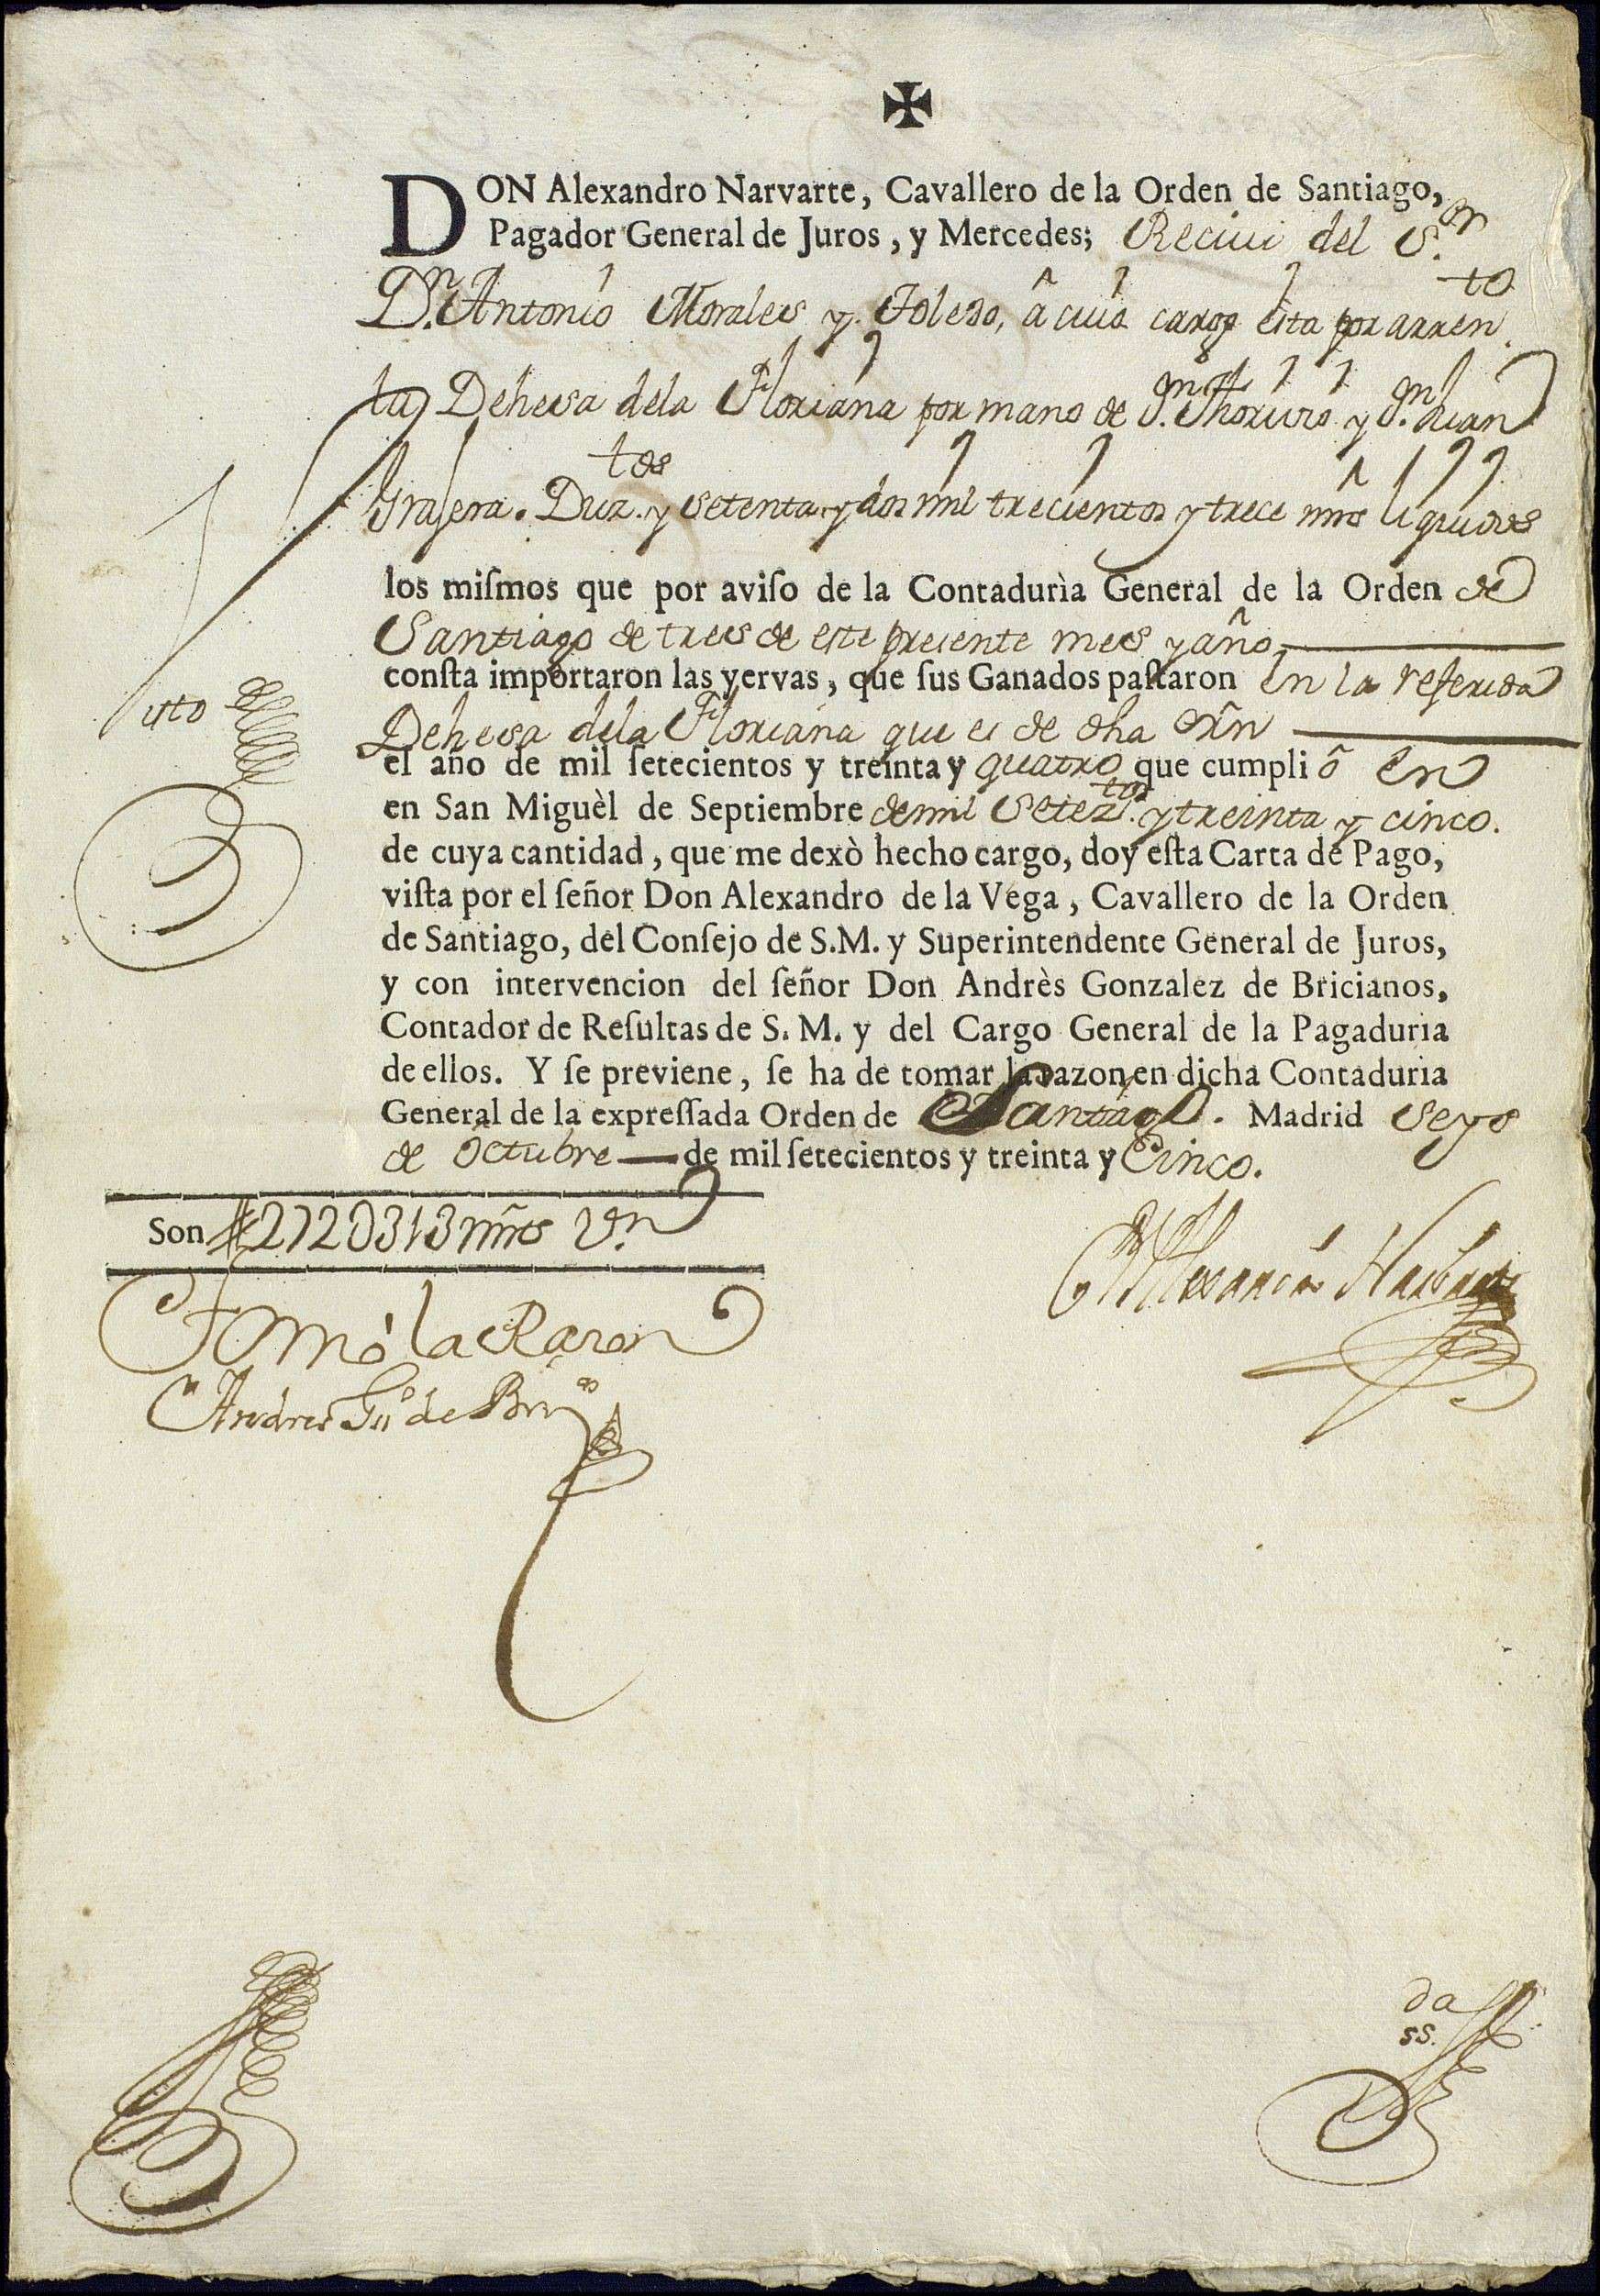 DON Alexandro Narvarte, Cavallero de la Orden de Santiago,
Pagador General de Juros, y Mercedes; Reciui del S.or
D.n Antonio Morales y Toledo, â cuio cargo esta por arren.to
la Dehesa dela Floriana por mano de D.n y D.n Juan
Grajera. Duz.tos y setenta y dos mil trecientos y trece mrs liquidos
los miſmos que por aviſo de la Contadurìa General de la Orden de
Santiago de tres de este presente mes y año
conſta importaron las yervas, que ſus Ganados paſtaron en la referida
Dehesa dela Floriana que es de dha Orn̂
el año de mil ſetecientos y treinta y quatro que cumpliô en
en San Miguèl de Septiembre de mil Setez.tos y treinta y cinco.
de cuya cantidad, que me dexò hecho cargo, doy eſta Carta de Pago,
viſta por el ſeñor Don Alexandro de la Vega, Cavallero de la Orden
de Santiago, del Conſejo de S.M. y Superintendente General de Juros,
y con intervencion del ſeñor Don Andrès Gonzalez de Bricianos,
Contador de Reſultas de S. M. y del Cargo General de la Pagaduria
de ellos. Y ſe previene, ſe ha de tomar la razon en dicha Contaduria
General de la expreſſada Orden de Santiago. Madrid Seys
de Octubre de mil ſetecientos y treinta y Cinco.
Son 272U313 mrs V.n
Alexandro Narbarte
Tomó la Razon
Andres Gz de Bri.os